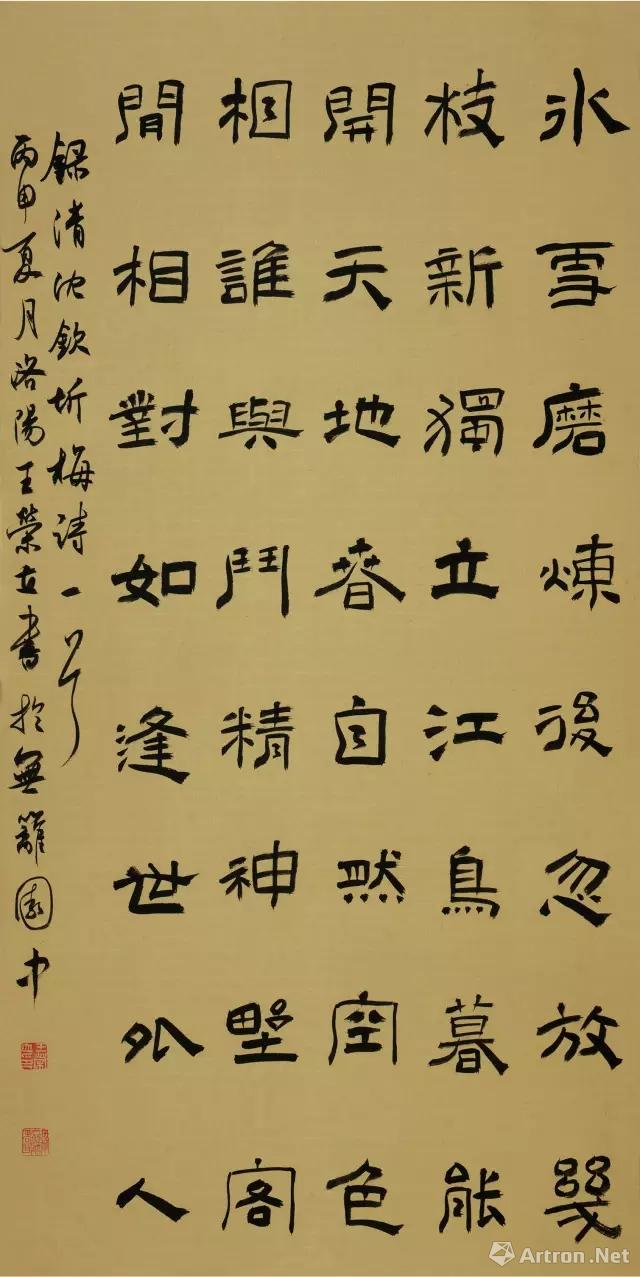 氷雪磨煉後忽放幾
枝新獨立江鳥暮能
開天地春自然空色
相誰與鬥精神野客
閒相對如逢世外人
録清沈欽圻梅詩一首
丙申夏月洛陽王榮立書於無籬園中
Artron.Net